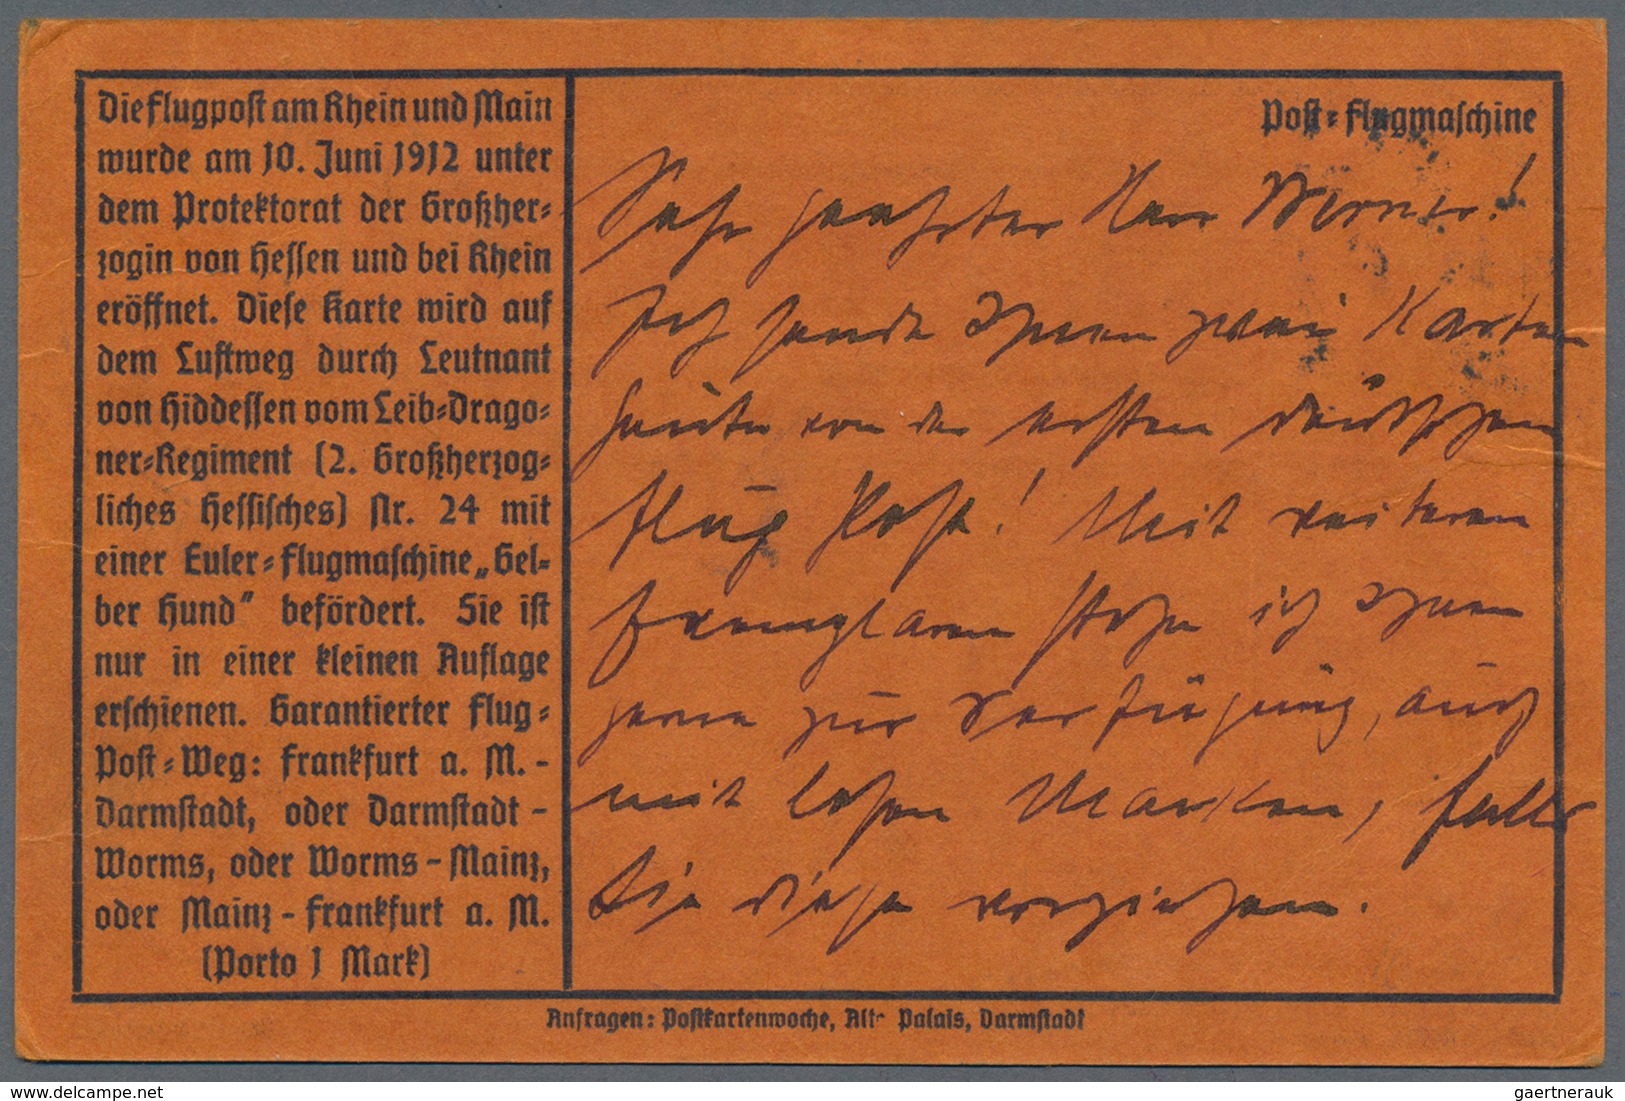 Die Flugpost am Rhein und Main
wurde am 10. Juni 1912 unter
dem Protektorat der Großher-
zogin von Hessen und bei Rhein
eröffnet. Diese Karte wird auf
dem Luftweg durch Leutnant
von Hiddessen vom Leib-Drago-
ner-Regiment (2. Großherzog-
liches Hessisches) Nr. 24 mit
einer Euler-Flugmaschine „Gel-
ber Hund" befördert. Sie ist
nur in einer kleinen Auflage
erschienen. Garantierter Flug-
Post-Weg: Frankfurt a. M. -
Darmstadt, oder Darmstadt -
Worms, oder Worms - Mainz,
oder Mainz - Frankfurt a. M.
(Porto 1 Mark)
Post-Flugmaschine
Sehr geehrter Herr Werner!
Ich sende Ihnen zwei Karten
heute von der ersten deutschen
Flug Post! Mit weiteren
Exemplaren stehe ich Ihnen
gerne zur Verfügung, auch
mit losen Marken, falls
Sie diese vorziehen.
Anfragen: Postkartenwoche, Alte Palais, Darmstadt
delcampe.net
gaertnerauk